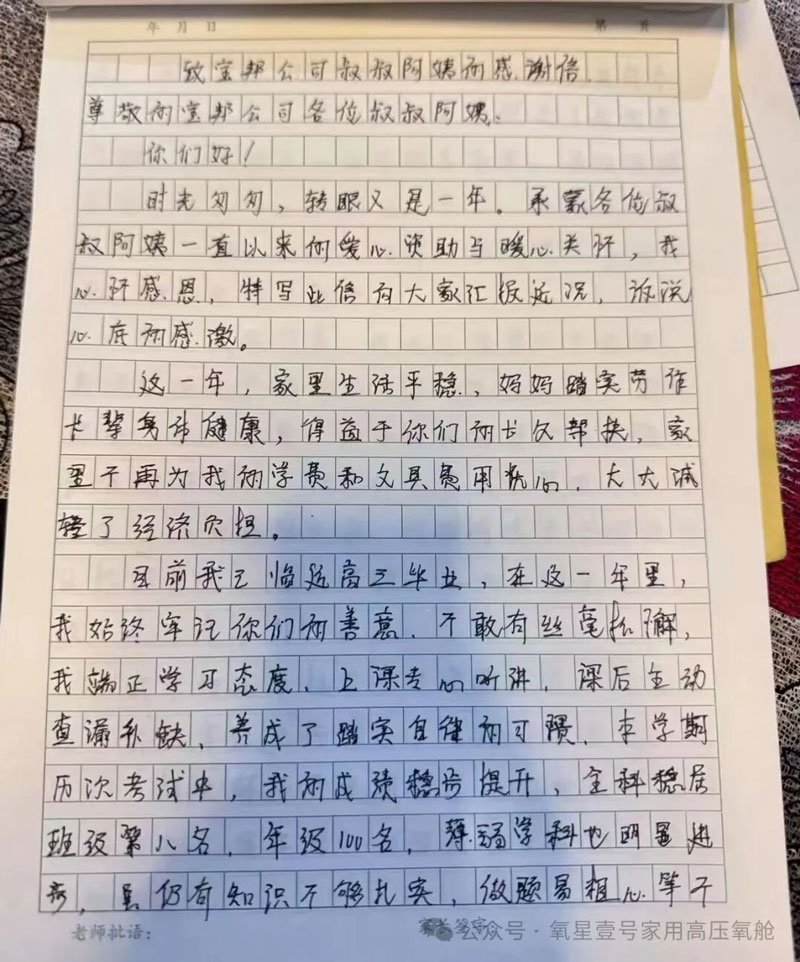 年 月 日 第 页
致宝邦公司叔叔阿姨的感谢信.
尊敬的宝邦公司各位叔叔阿姨:
你们好!
时光匆匆,转眼又是一年。承蒙各位叔
叔阿姨一直以来的爱心资助与暖心关怀,我
心怀感恩,特写此信向大家汇报近况,诉说
心底的感激。
这一年,家里生活平稳,妈妈踏实劳作
长辈身体健康,得益于你们的长久帮扶,家
里不再为我的学费和文具费用忧心,大大减
轻了经济负担。
目前我已临近高三毕业,在这一年里,
我始终牢记你们的善意,不敢有丝毫松懈,
我端正学习态度、上课专心听讲,课后主动
查漏补缺、养成了踏实自律的习惯、本学期
历次考试中,我的成绩稳步提升、全科稳居
班级第八名,年级100名,薄弱学科也明显进
步,虽仍有知识不够扎实,做题易粗心等不
老师批语: 家长签字
公众号·氧星壹号家用高压氧舱